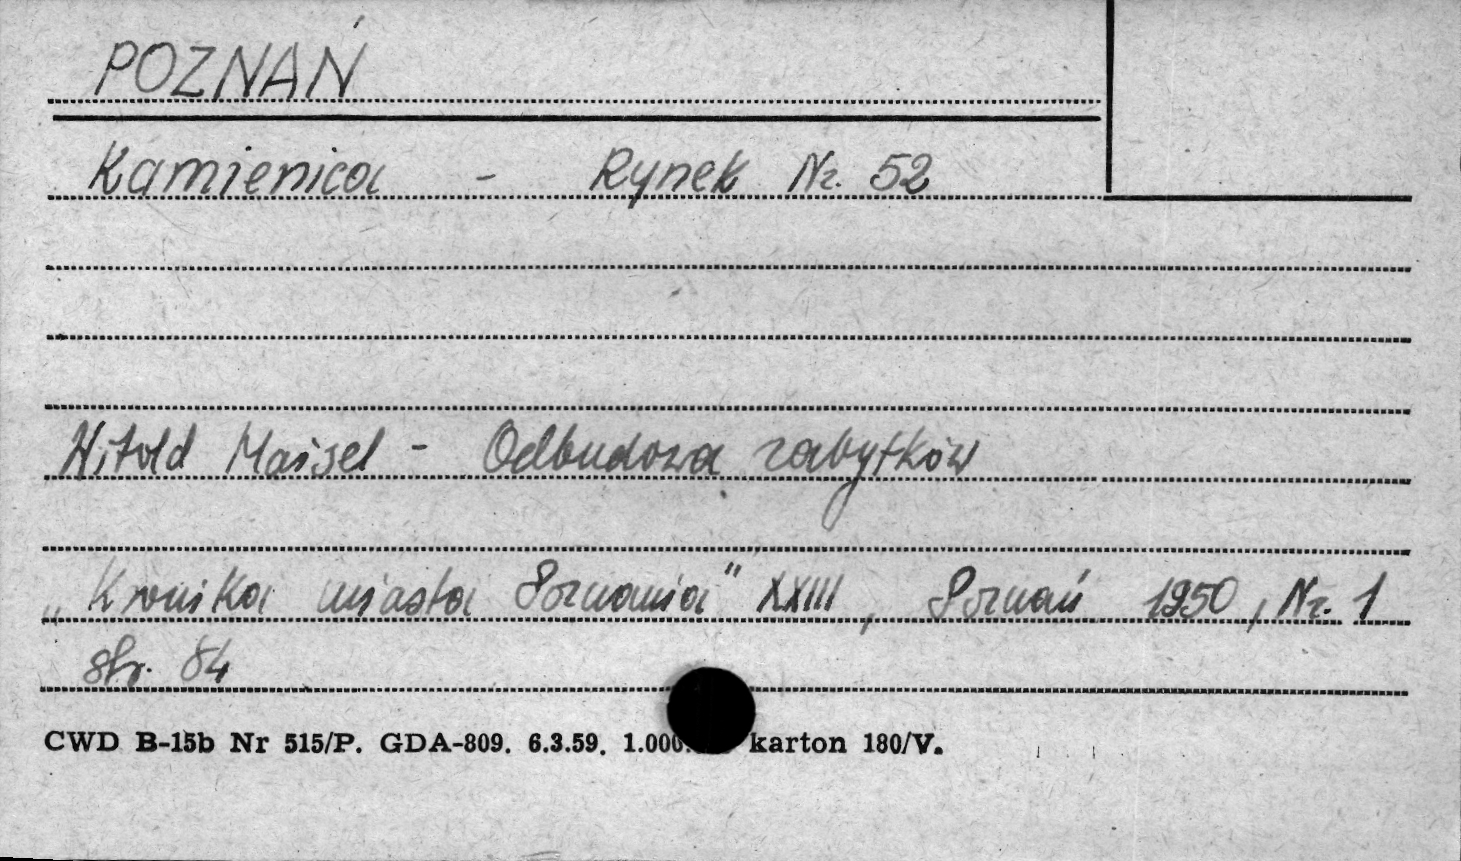 POZNAŃ
Kamienica - Rynek Nr. 52
Witold Maisel - Odbudowa zabytków
„Kronika miasta Poznania" XXIII, Poznań 1950, Nr. 1
str. 84
CWD B-15b Nr 515/P. GDA-809. 6.3.59. 1.000. karton 180/V.